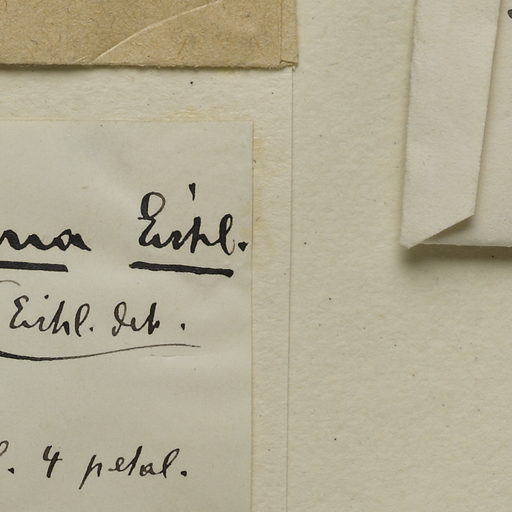 Eichl.
Eichl. det.
4 petal.